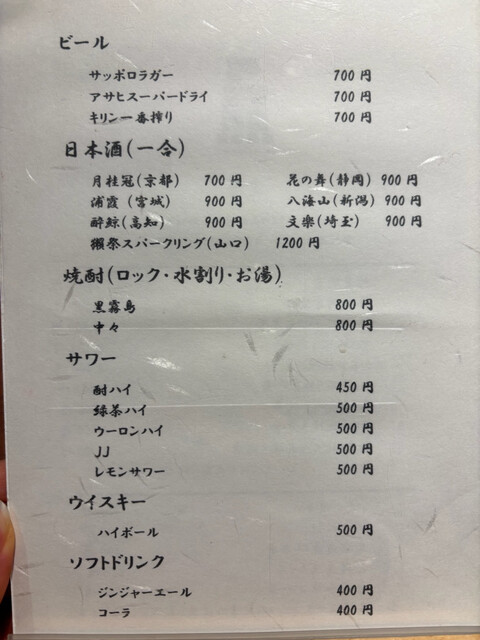 ビール
サッポロラガー 700円
アサヒスーパードライ 700円
キリン一番搾り 700円
日本酒(一合)
月桂冠(京都) 700円 花の舞(静岡) 900円
浦霞(宮城) 900円 八海山(新潟) 900円
酔鯨(高知) 900円 文楽(埼玉) 900円
獺祭スパークリング(山口) 1200円
焼酎(ロック・水割り・お湯)
黒霧島 800円
中々 800円
サワー
酎ハイ 450円
緑茶ハイ 500円
ウーロンハイ 500円
JJ 500円
レモンサワー 500円
ウイスキー
ハイボール 500円
ソフトドリンク
ジンジャーエール 400円
コーラ 400円